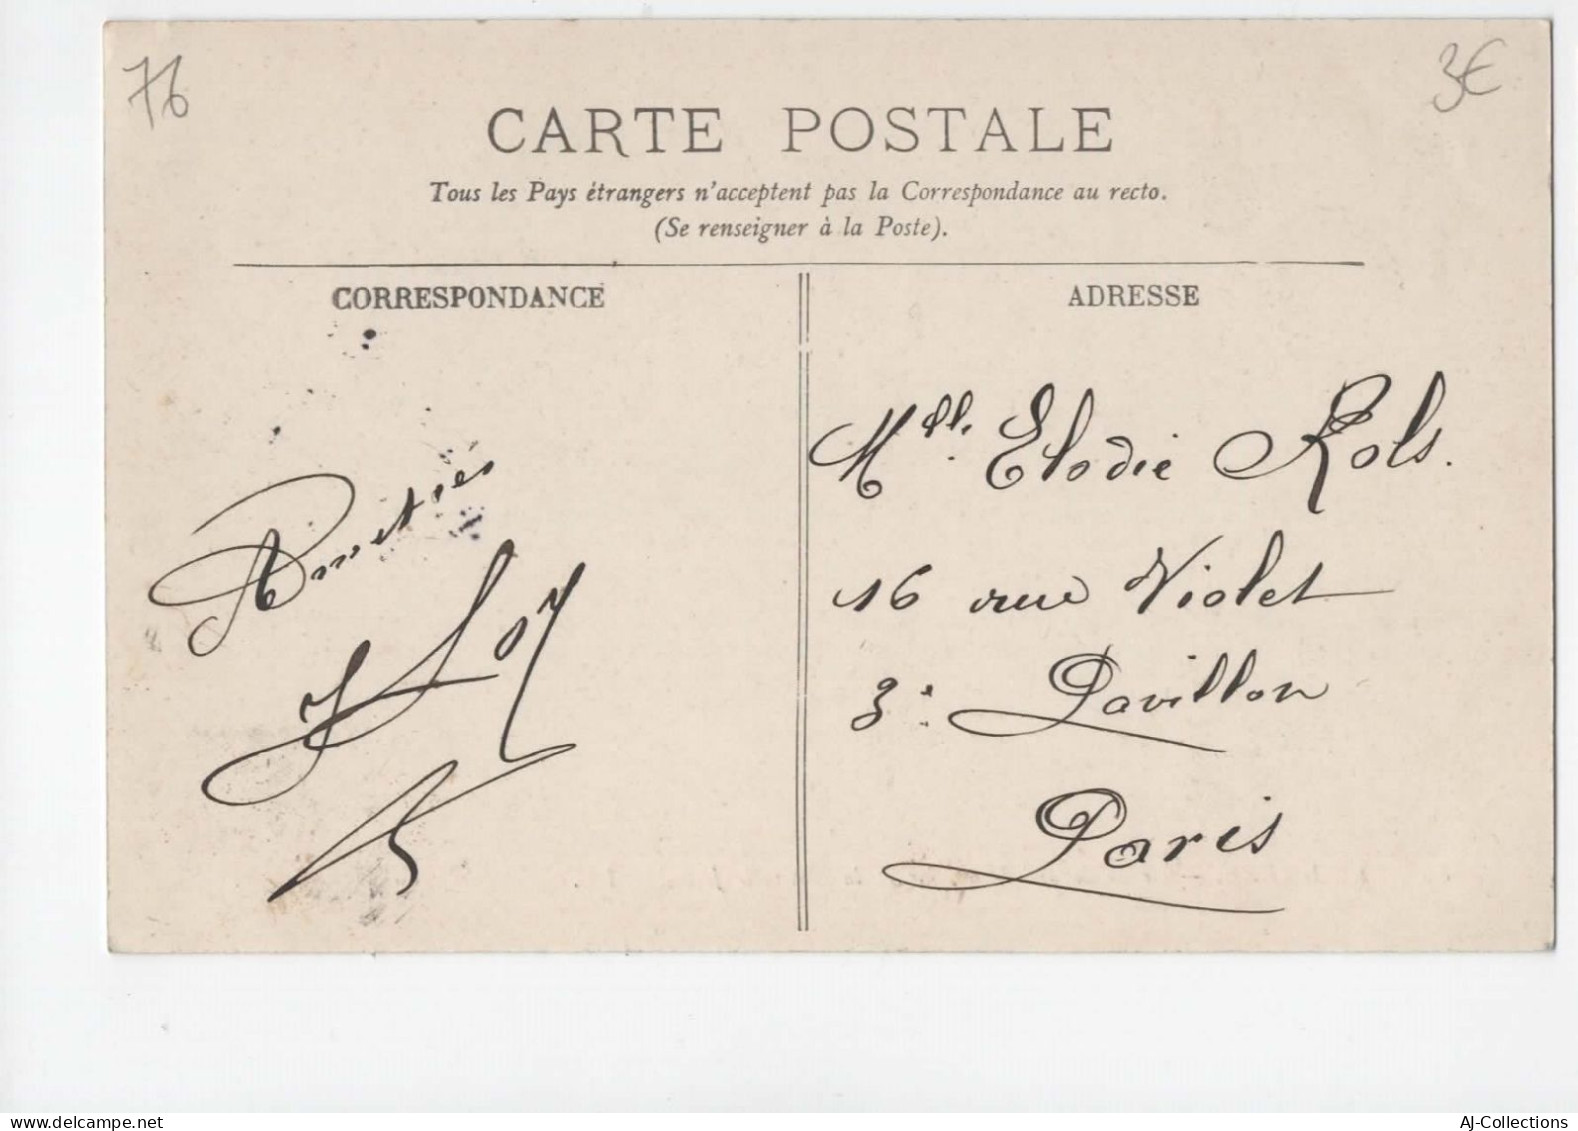 76
3€
CARTE POSTALE
Tous les Pays étrangers n'acceptent pas la Correspondance au recto.
(Se renseigner à la Poste).
CORRESPONDANCE
ADRESSE
Amitiés
Mlle. Elodie Rols.
16 rue Violet
3e: Pavillon
Paris
www.delcampe.net
AJ-Collections